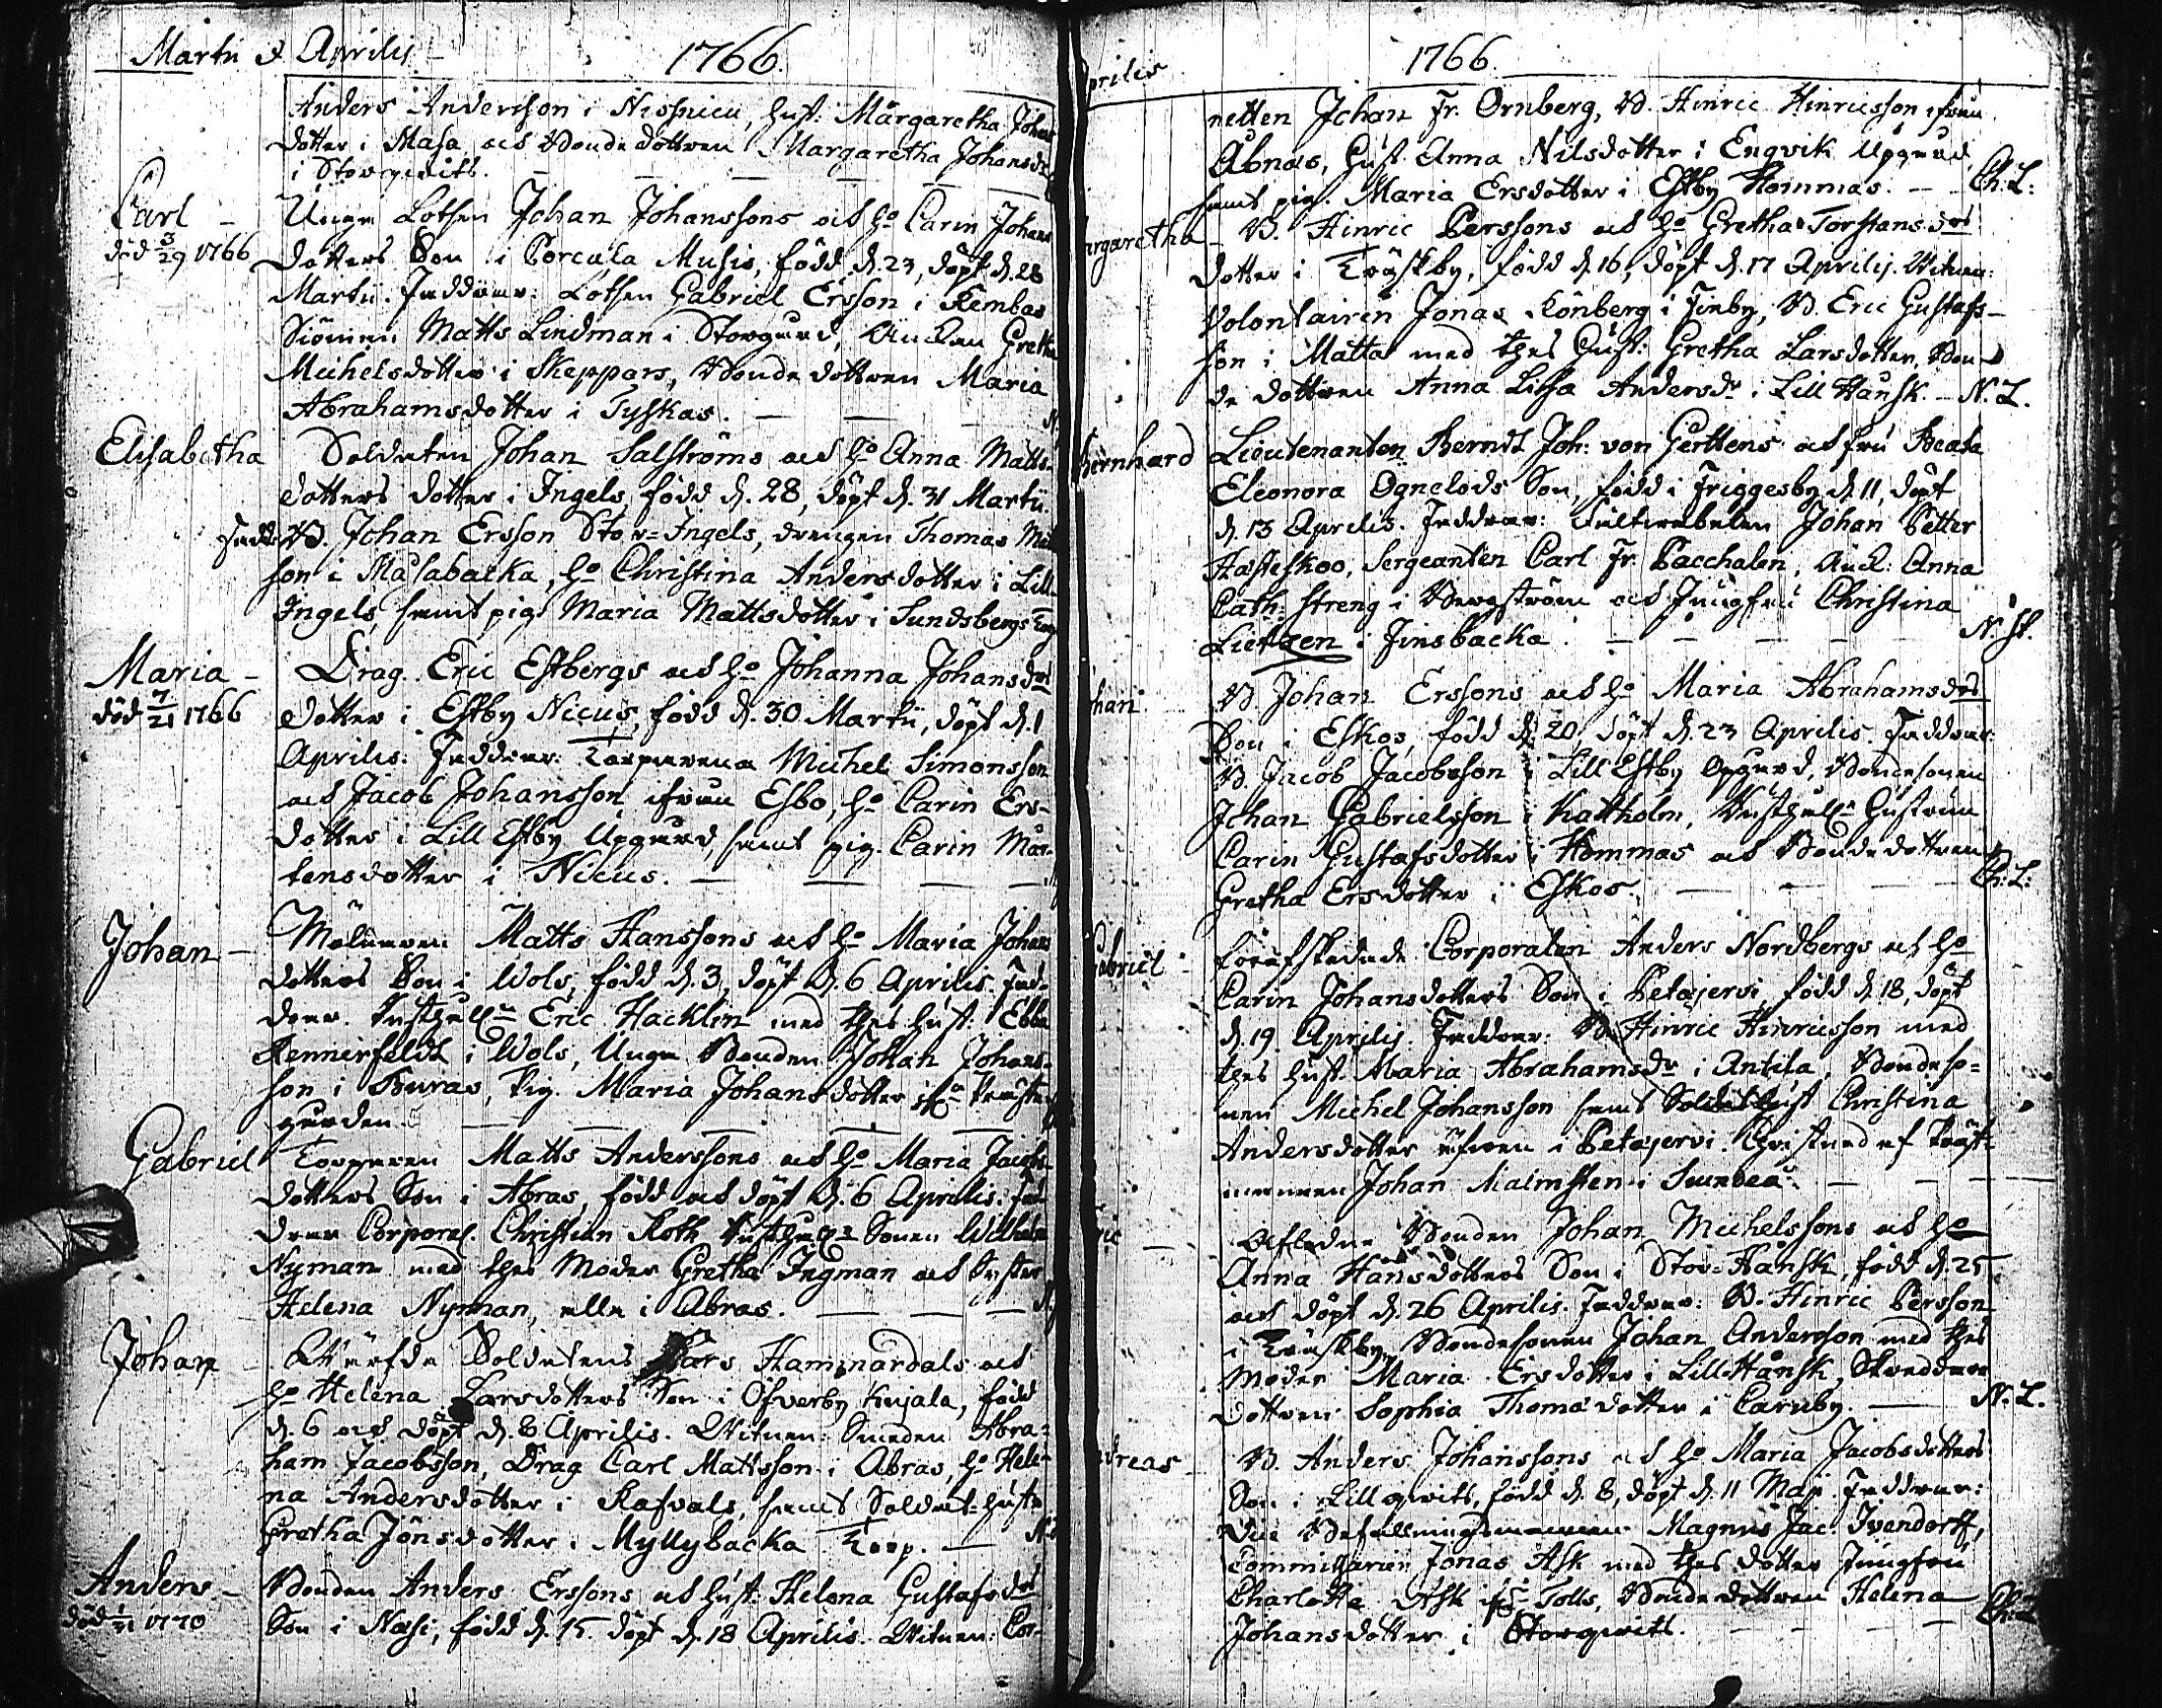 Martii & Aprilis
1766.
Anders Andersson i Nissnicu, Hust: Margaretha Johans
dotter i Masa, och Bonde dottren Margaretha Johansdr
i Storqwits.
Carl
död 3/29 1766
Unge Lotsen Johan Johanssons och Ho Carin Johans
dotters Son i Porcala Musis, född d. 23, döpt d. 28
Martii. Faddrar: Lotsen Gabriel Ersson i Rembas
Siöman Matts Lindman i Storgård, Änckan Gretha
Michelsdotter i Skeppars, Bonde dottren Maria
Abrahamsdotter i Tyskas.
Elisabetha
Soldaten Johan Salströms och Ho Anna Matts-
dotters dotter i Ingels, född d. 28, döpt d. 31 Martii.
Fadd: B. Johan Ersson Stor-Ingels, drengen Thomas
son i Masabacka, Ho Christina Andersdotter i Lill-
Ingels, samt pig. Maria Mattsdotter i Sundsbergs
Maria
död 7/21 1766
Drag. Eric Estbergs och Ho Johanna Johansdrs
dotter i Estby Nicus, född d. 30 Martii, döpt d. 1
Aprilis: Faddrar: Torparena Michel Simonsson
och Jacob Johansson ifrån Esbo, Ho Carin Ers-
dotter i Lill Estby Upgård, samt pig. Carin Mår-
tensdotter i Nicus.
Johan
Mölnaren Matts Hanssons och Ho Maria Johans
dotters Son i Wols, född d. 3, döpt d. 6 Aprilis. Fad-
drar. Rusthålln Eric Hacklin med thes Hust: Ebba
Rennerfeldt i Wols, Unga Bonden Johan Johans-
son i Buras, Pig. Maria Johansdotter ifrn Präste-
gården.
Gabriel
Torparen Matts Anderssons och Ho Maria Jacobs
dotters Son i Abras, född och döpt d. 6 Aprilis: Fad
drar Corporal. Christian Roth, Rusthålls Sonen Wilhelm
Nyman med thes Moder Gretha Ingman och Syster
Helena Nyman, alla i Abras.
Johan
Wärfde Soldatens Lars Hammardals och
Ho Helena Larsdotters Son i Öfverby Kujala, född
d. 6 och döpt d. 8 Aprilis. Witnen: Smeden Abra-
ham Jacobsson, Drag Carl Mattsson i Abras, Ho Hele-
na Andersdotter i Rafvals, samt Soldat-Hustr
Gretha Jönsdotter i Myllybacka Torp.
Anders
död 1770
Bonden Anders Erssons och Hust: Helena Gustafsdrs
Son i Näsi, född d. 15. döpt d. 18 Aprilis. Witnen: Cor-
prilis
1766.
netten Johan Fr. Örnberg, B. Hinric Hinricsson ifrån
Åbnäs, Hust Anna Nilsdotter i Engvik Upgård
samt pig. Maria Ersdotter i Estby Hommas. Ch: L:
rgaretha
B. Hinric Perssons och Ho Gretha Torstansdrs
dotter i Träskby, född d. 16, döpt d. 17 Aprilis. Witnen:
Volontairen Jonas Rönberg i Finby, B. Eric Gustafs-
son i Matta med thes Hust: Gretha Larsdotter, Bon-
de dottren Anna Lisa Andersdr i Lill Hansk. N. L.
Bernhard
Lieutenanten Berndt Joh: von Gerttens och fru Beata
Eleonora Ögnelods Son, född i Friggesby d. 11, döpt
d. 13 Aprilis. Faddrar: Fältwäbelen Johan Petter
Hæsteskoo, Sergeanten Carl Fr. Pacchalen, Änck: Anna
Cath: Streng i Bergström och Jungfru Christina
Lietzen i Finsbacka. N. St.
han
B Johan Erssons och Ho Maria Abrahamsdrs
Son i Eskos, född d. 20, döpt d. 23 Aprilis. Faddrar:
B. Jacob Jacobsson i Lill Estby Opgård, Bondesonen
Johan Gabrielsson i Kattholm, Rusthålls Hustrun
Carin Gustafsdotter i Hommas och Bonde dottren
Gretha Ersdotter i Eskos. Ch: L:
abriel
förafskedade Corporalen Anders Nordbergs och Ho
Carin Johansdotters Son i Petajervi, född d. 18, döpt
d. 19 Aprilis. Faddrar: B. Hinric Hinricsson med
thes Hust. Maria Abrahamsdr i Antila, Bondeso-
nen Michel Johansson samt Soldat Hust Christina
Andersdotter i Petajervi. Christnad af
Johan Malmsten i Swidea.
ric
Afledne Bonden Johan Michelssons och Ho
Anna Hansdotters Son i Stor-Hansk, född d. 25
och döpt d. 26 Aprilis. Faddrar: B. Hinric Persson
i Träskby, Bondesonen Johan Andersson med thes
moder Maria Ersdotter i Lill-Hansk, Skreddare
dottren Sophia Thomædotter i Caruby. N. L.
dreas
B. Anders Johanssons och Ho Maria Jacobsdotters
Son i Lillqwits, född d. 8, döpt d. 11 Maji. Faddrar:
Befallningsmannen Magnus Jac. Ivendorff,
Commissarien Jonas Ask med thes dotter Jungfru
Charlotta Ask ifrn Tolls, Bonde dottren Helena
Johansdotter i Storqwits. Ch: L